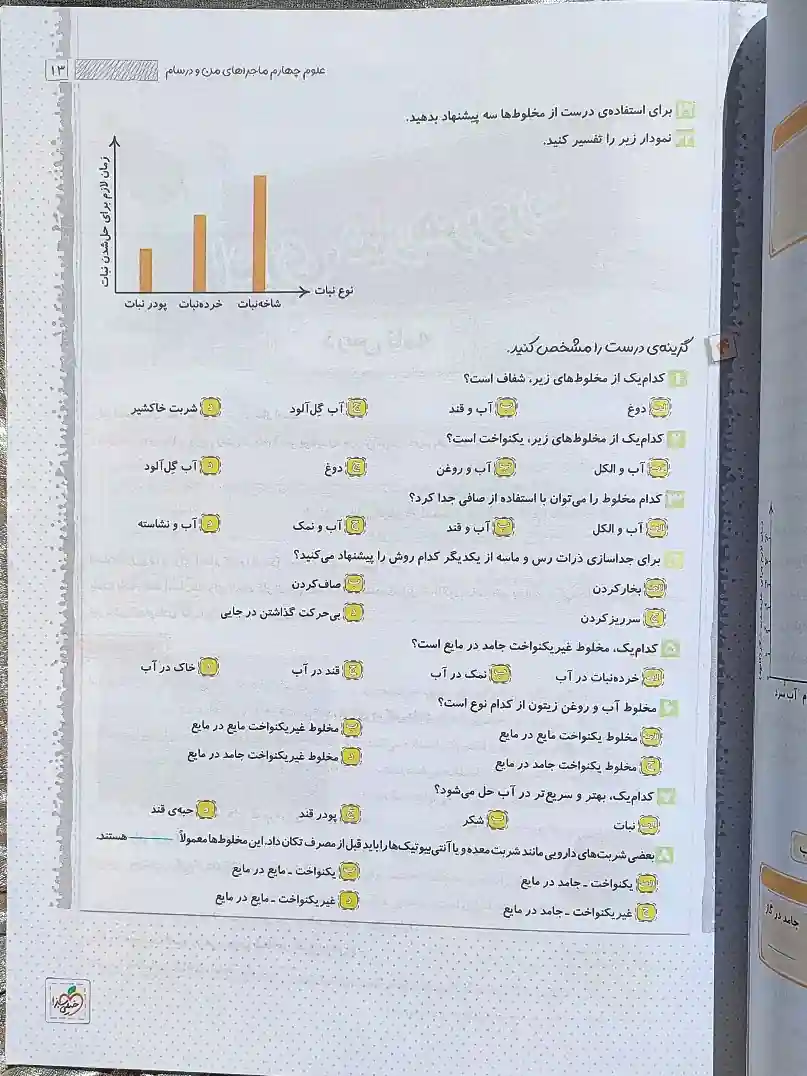 علوم چهارم ماجراهای من و درسام
۱۳
برای استفاده‌ی درست از مخلوط‌ها سه پیشنهاد بدهید.
نمودار زیر را تفسیر کنید.
زمان لازم برای حل‌شدن نبات
نوع نبات
پودر نبات خرده‌نبات شاخه‌نبات
۴ گزینه‌ی درست را مشخص کنید.
۱ کدام‌یک از مخلوط‌های زیر، شفاف است؟
الف دوغ ب آب و قند ج آب گِل‌آلود د شربت خاکشیر
۲ کدام‌یک از مخلوط‌های زیر، یکنواخت است؟
الف آب و الکل ب آب و روغن ج دوغ د آب گِل‌آلود
۳ کدام مخلوط را می‌توان با استفاده از صافی جدا کرد؟
الف آب و الکل ب آب و قند ج آب و نمک د آب و نشاسته
۴ برای جداسازی ذرات رس و ماسه از یکدیگر کدام روش را پیشنهاد می‌کنید؟
الف بخارکردن ب صاف‌کردن
ج سرریزکردن د بی‌حرکت گذاشتن در جایی
۵ کدام‌یک، مخلوط غیریکنواخت جامد در مایع است؟
الف خرده‌نبات در آب ب نمک در آب ج قند در آب د خاک در آب
۶ مخلوط آب و روغن زیتون از کدام نوع است؟
الف مخلوط یکنواخت مایع در مایع ب مخلوط غیریکنواخت مایع در مایع
ج مخلوط یکنواخت جامد در مایع د مخلوط غیریکنواخت جامد در مایع
۷ کدام‌یک، بهتر و سریع‌تر در آب حل می‌شود؟
الف نبات ب شکر ج پودر قند د حبه‌ی قند
۸ بعضی شربت‌های دارویی مانند شربت معده و یا آنتی‌بیوتیک‌ها را باید قبل از مصرف تکان داد. این مخلوط‌ها معمولاً ______ هستند.
الف یکنواخت ـ جامد در مایع ب یکنواخت ـ مایع در مایع
ج غیریکنواخت ـ جامد در مایع د غیریکنواخت ـ مایع در مایع
خیلی سبز
آب سرد
جامد در گاز